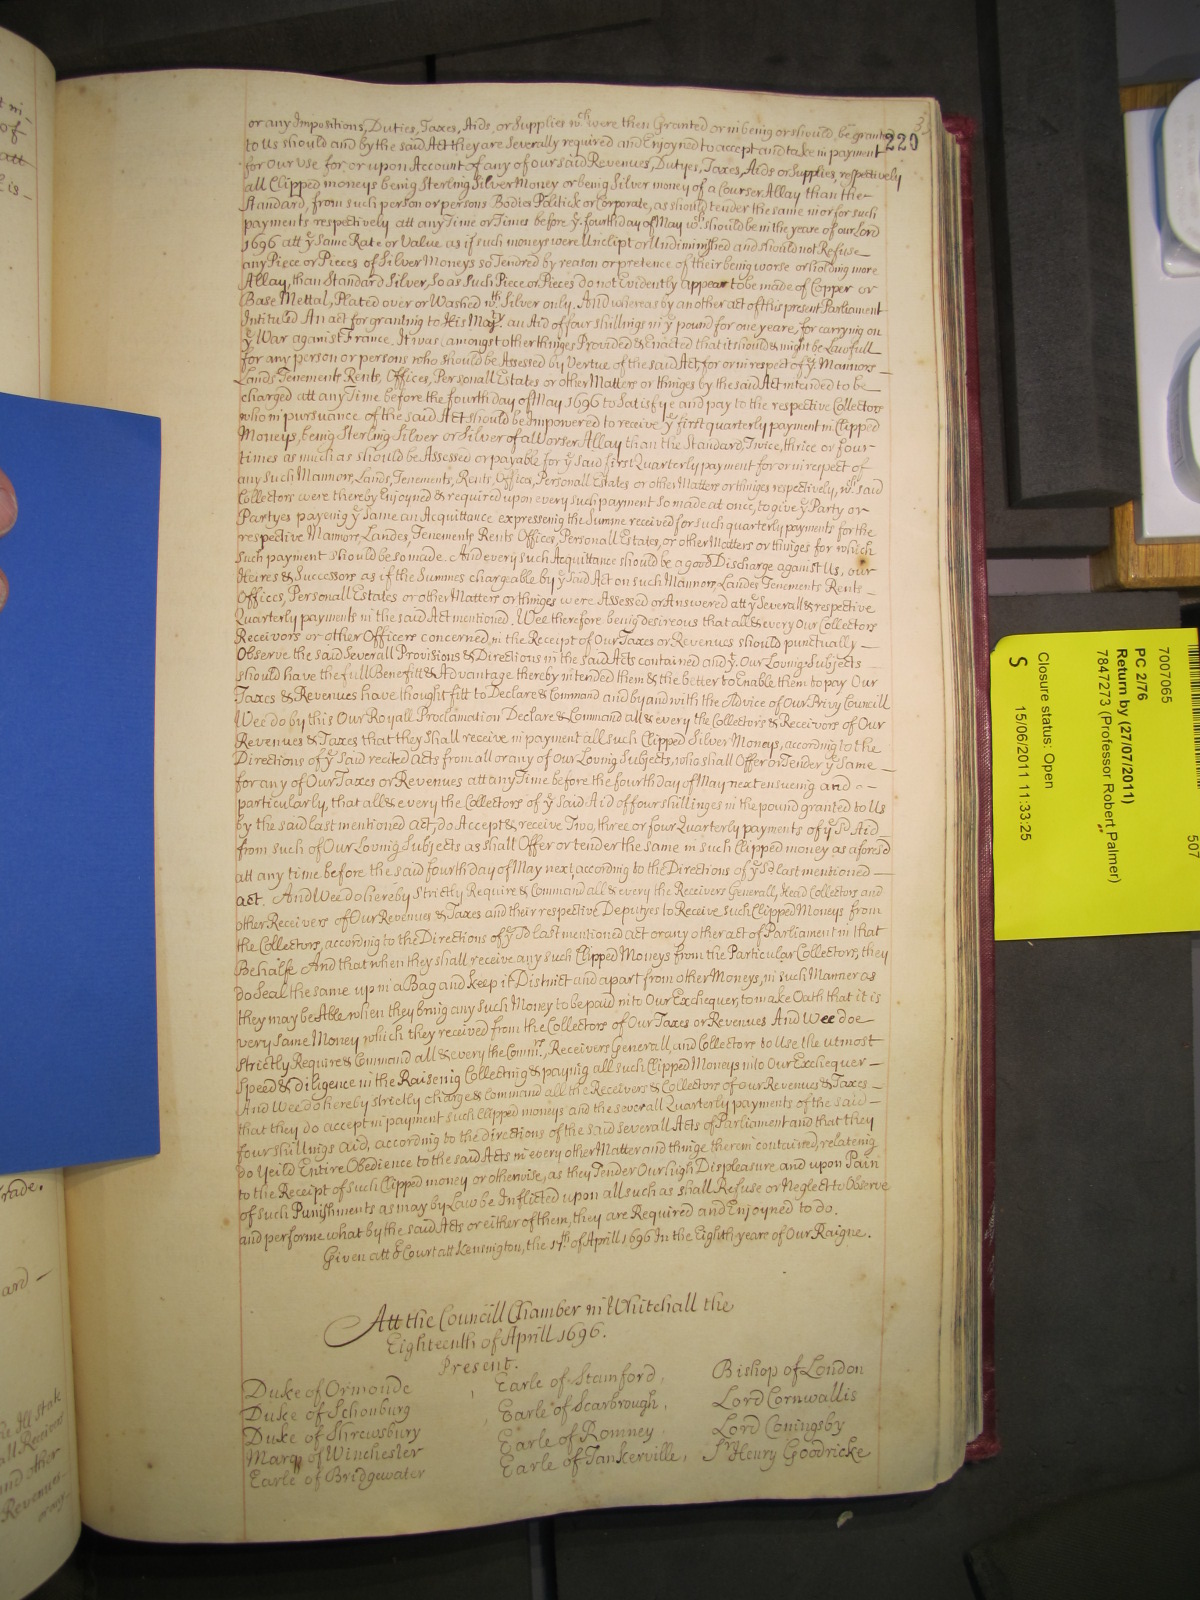 or any Impositions, Duties, Taxes, Aids, or Supplies wch were then Granted or in being or should be granted
220
to Us should and by the said Act they are Severally required and Enjoyned to accept and take in payment
for Our Use for or upon Account of any of our said Revenues, Dutyes, Taxes, Aids or Supplies, respectively
all Clipped moneys being Sterling Silver Money or being Silver money of a Courser Allay than the
Standard, from such person or persons Bodia Politick or Corporate, as should tender the same in or for such
payments respectively att any Time or Times before ye fourth day of May wch should be in the yeare of our Lord
1696 att ye Same Rate or Value as if such moneys were Unclipt or Undiminished and should not Refuse
any Piece or Pieces of Silver Moneys so Tendred by reason or pretence of their being worse or holding more
Allay, than Standard Silver, So as Such Piece or Pieces do not Evidently appear to be made of Copper or
Base Mettal, Plated over or Washed wth Silver only, And whereas by an other act of this present Parliament
Intituled An act for granting to His Maty. an Aid of four shillings in ye pound for one yeare, for carrying on
ye War against France. It was amongst other things Provided & Enacted that it should & might be Lawfull
for any person or persons who should be Assessed by Vertue of the said Act, for or in respect of ye Mannors
Lands Tenements Rents, Offices, Personall Estates or other Matters or things by the said Act intended to be
charged att any Time before the fourth day of May 1696 to Satisfye and pay to the respective Collectors
who in pursuance of the said Act should be Impowered to receive ye first quarterly payment in Clipped
Moneys, being Sterling Silver or Silver of a Worser Allay than the Standard, Twice, thrice or four
times as much as should be Assessed or payable for ye Said first Quarterly payment for or in respect of
any such Mannor, Lands, Tenements, Rents, Offices, Personall Estates or other Matters or things respectively, wch said
Collectors were thereby Enjoyned & required upon every such payment so made at once, to give ye Party or
Partyes payeing ye Same an Acquittance expressing the Summe received for such quarterly payments for the
respective Mannors, Landes, Tenements Rents Offices, Personal Estates, or other Matters or things for which
such payment should be so made. And every such Acquittance should be a good Discharge against Us, our
Heires & Successors as if the Summes chargeable by ye Said Act on such Mannors, Landes Tenements Rents
Offices, Personall Estates or other Matters or things were Assessed or Answered att ye Severall & respective
Quarterly payments in the said Act mentioned. Wee therefore being desireous that all & every Our Collectors
Receivors or other Officers concerned in the Receipt of Our Taxes or Revenues should punctually
Observe the said Severall Provisions & Directions in the said Acts contained and yt Our Loving Subjects
should have the full Benefitt & Advantage thereby intended them & the better to Enable them to pay Our
Taxes & Revenues have thought fitt to Declare & Command and by and with the Advice of Our Privy Councill
Wee do by this Our Royall Proclamation Declare & Command all & every the Collectors & Receivors of Our
Revenues & Taxes that they shall receive in payment all such Clipped Silver Moneys, according to the
Directions of ye Said recited acts from all or any of Our Loving Subjects, who shall Offer or Tender ye Same
for any of Our Taxes or Revenues att any Time before the fourth day of May next ensueing and
particularly, that all & every the Collectors of ye Said Aid of four shillinges in the pound granted to Us
by the said last mentioned act, do Accept & receive Two, three or four Quarterly payments of ye Sd Aid
from such of Our Loving Subjects as shall Offer or tender the same in such Clipped money as aforesd
att any time before the said fourth day of May next, according to the Directions of ye Sd last mentioned
act. And Wee do hereby Strictly Require & Command all & every the Receivers Generall, Head Collectors and
other Receivers of Our Revenues & Taxes and their respective Deputyes to Receive such Clipped Moneys from
the Collectors, according to the Directions of ye Sd last mentioned act or any other act of Parliament in that
Behalfe And that when they shall receive any such Clipped Moneys from the Particular Collectors, they
do Seal the same up in a Bag and keep it Distinct and apart from other Moneys, in such Manner as
they may be Able when they bring any such Money to be paid into Our Exchequer, to make Oath that it is
very same Money which they received from the Collectors of Our Taxes or Revenues And Wee doe
Strictly Require & Command all & every the Commrs, Receivers Generall, and Collectors to Use the utmost
speed & diligence in the Raiseing Collecting & paying all such Clipped Moneys into Our Exchequer
And Wee do hereby strictly charge & command all the Receivers & Collectors of our Revenues & Taxes
that they do accept in payment such Clipped moneys and the severall Quarterly payments of the said
four shillings aid, according to the directions of the said severall Acts of Parliament and that they
do yeild Entire Obedience to the said Acts in every other Matter and thinge therein contained, relateing
to the Receipt of such Clipped money or otherwise, as they Tender Our high Displeasure and upon Pain
of such Punishments as may by Law be Inflicted upon all such as shall Refuse or Neglect to Observe
and performe what by the said Acts or either of them, they are Required and Enjoyned to do.
Given att Court att Kensington, the 17th of Aprill 1696 In the Eighth yeare of Our Raigne.
Att the Councill Chamber in Whitehall the
Eighteenth of Aprill 1696.
Present.
Duke of Ormonde Earle of Stamford, Bishop of London
Duke of Schonburg Earle of Scarbrough, Lord Cornwallis
Duke of Shrewsbury Earle of Romney Lord Coningsby
Marq of Winchester Earle of Tankerville, Sr Henry Goodricke
Earle of Bridgewater
7007065
507
PC 2/76
Return by (27/07/2011)
7847273 (Professor Robert Palmer)
Closure status: Open
S
15/06/2011 11:33:25